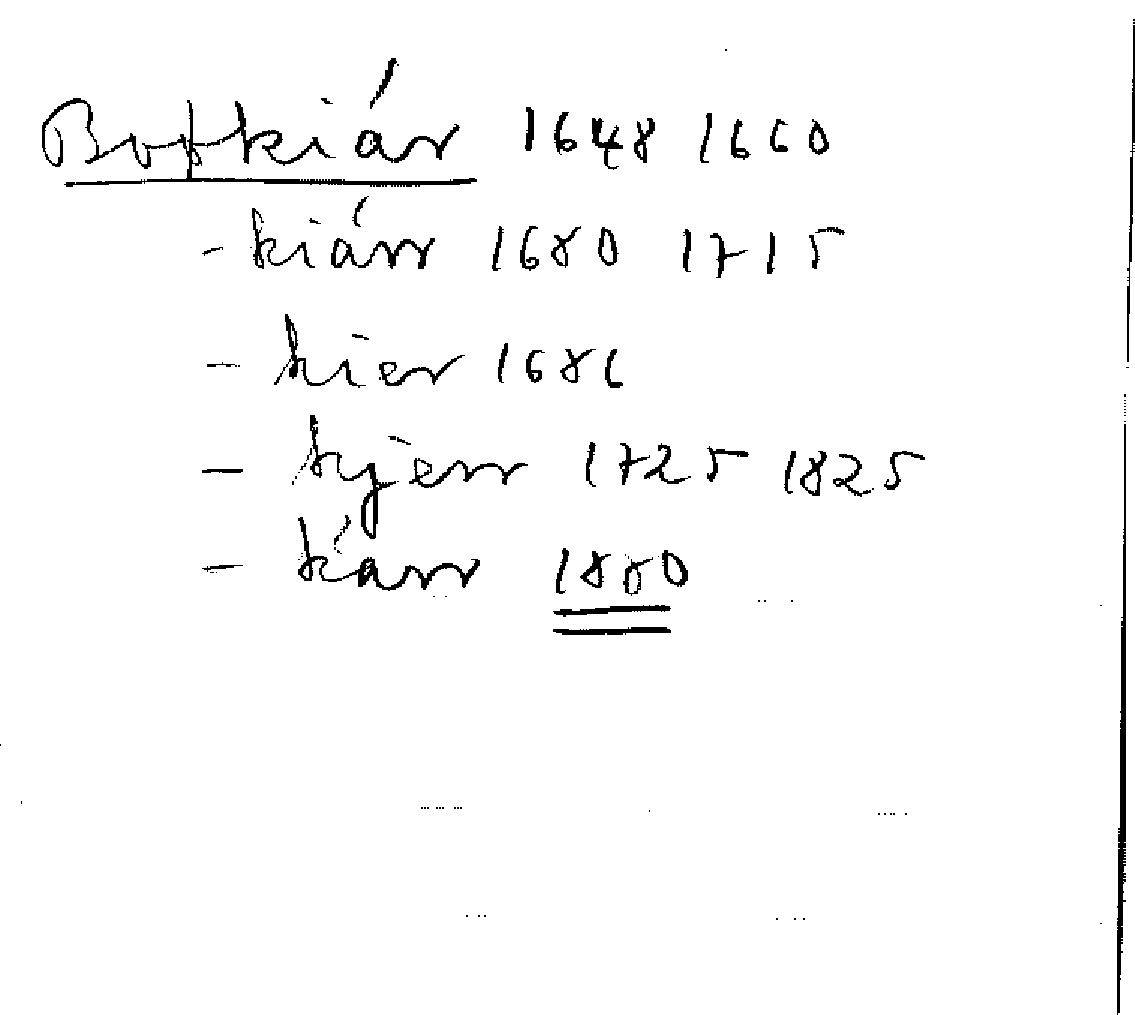 Botkiár 1648 1660
- kiárr 1680 1715
- kier 1686
- kjerr 1725 1825
- kárr 1880